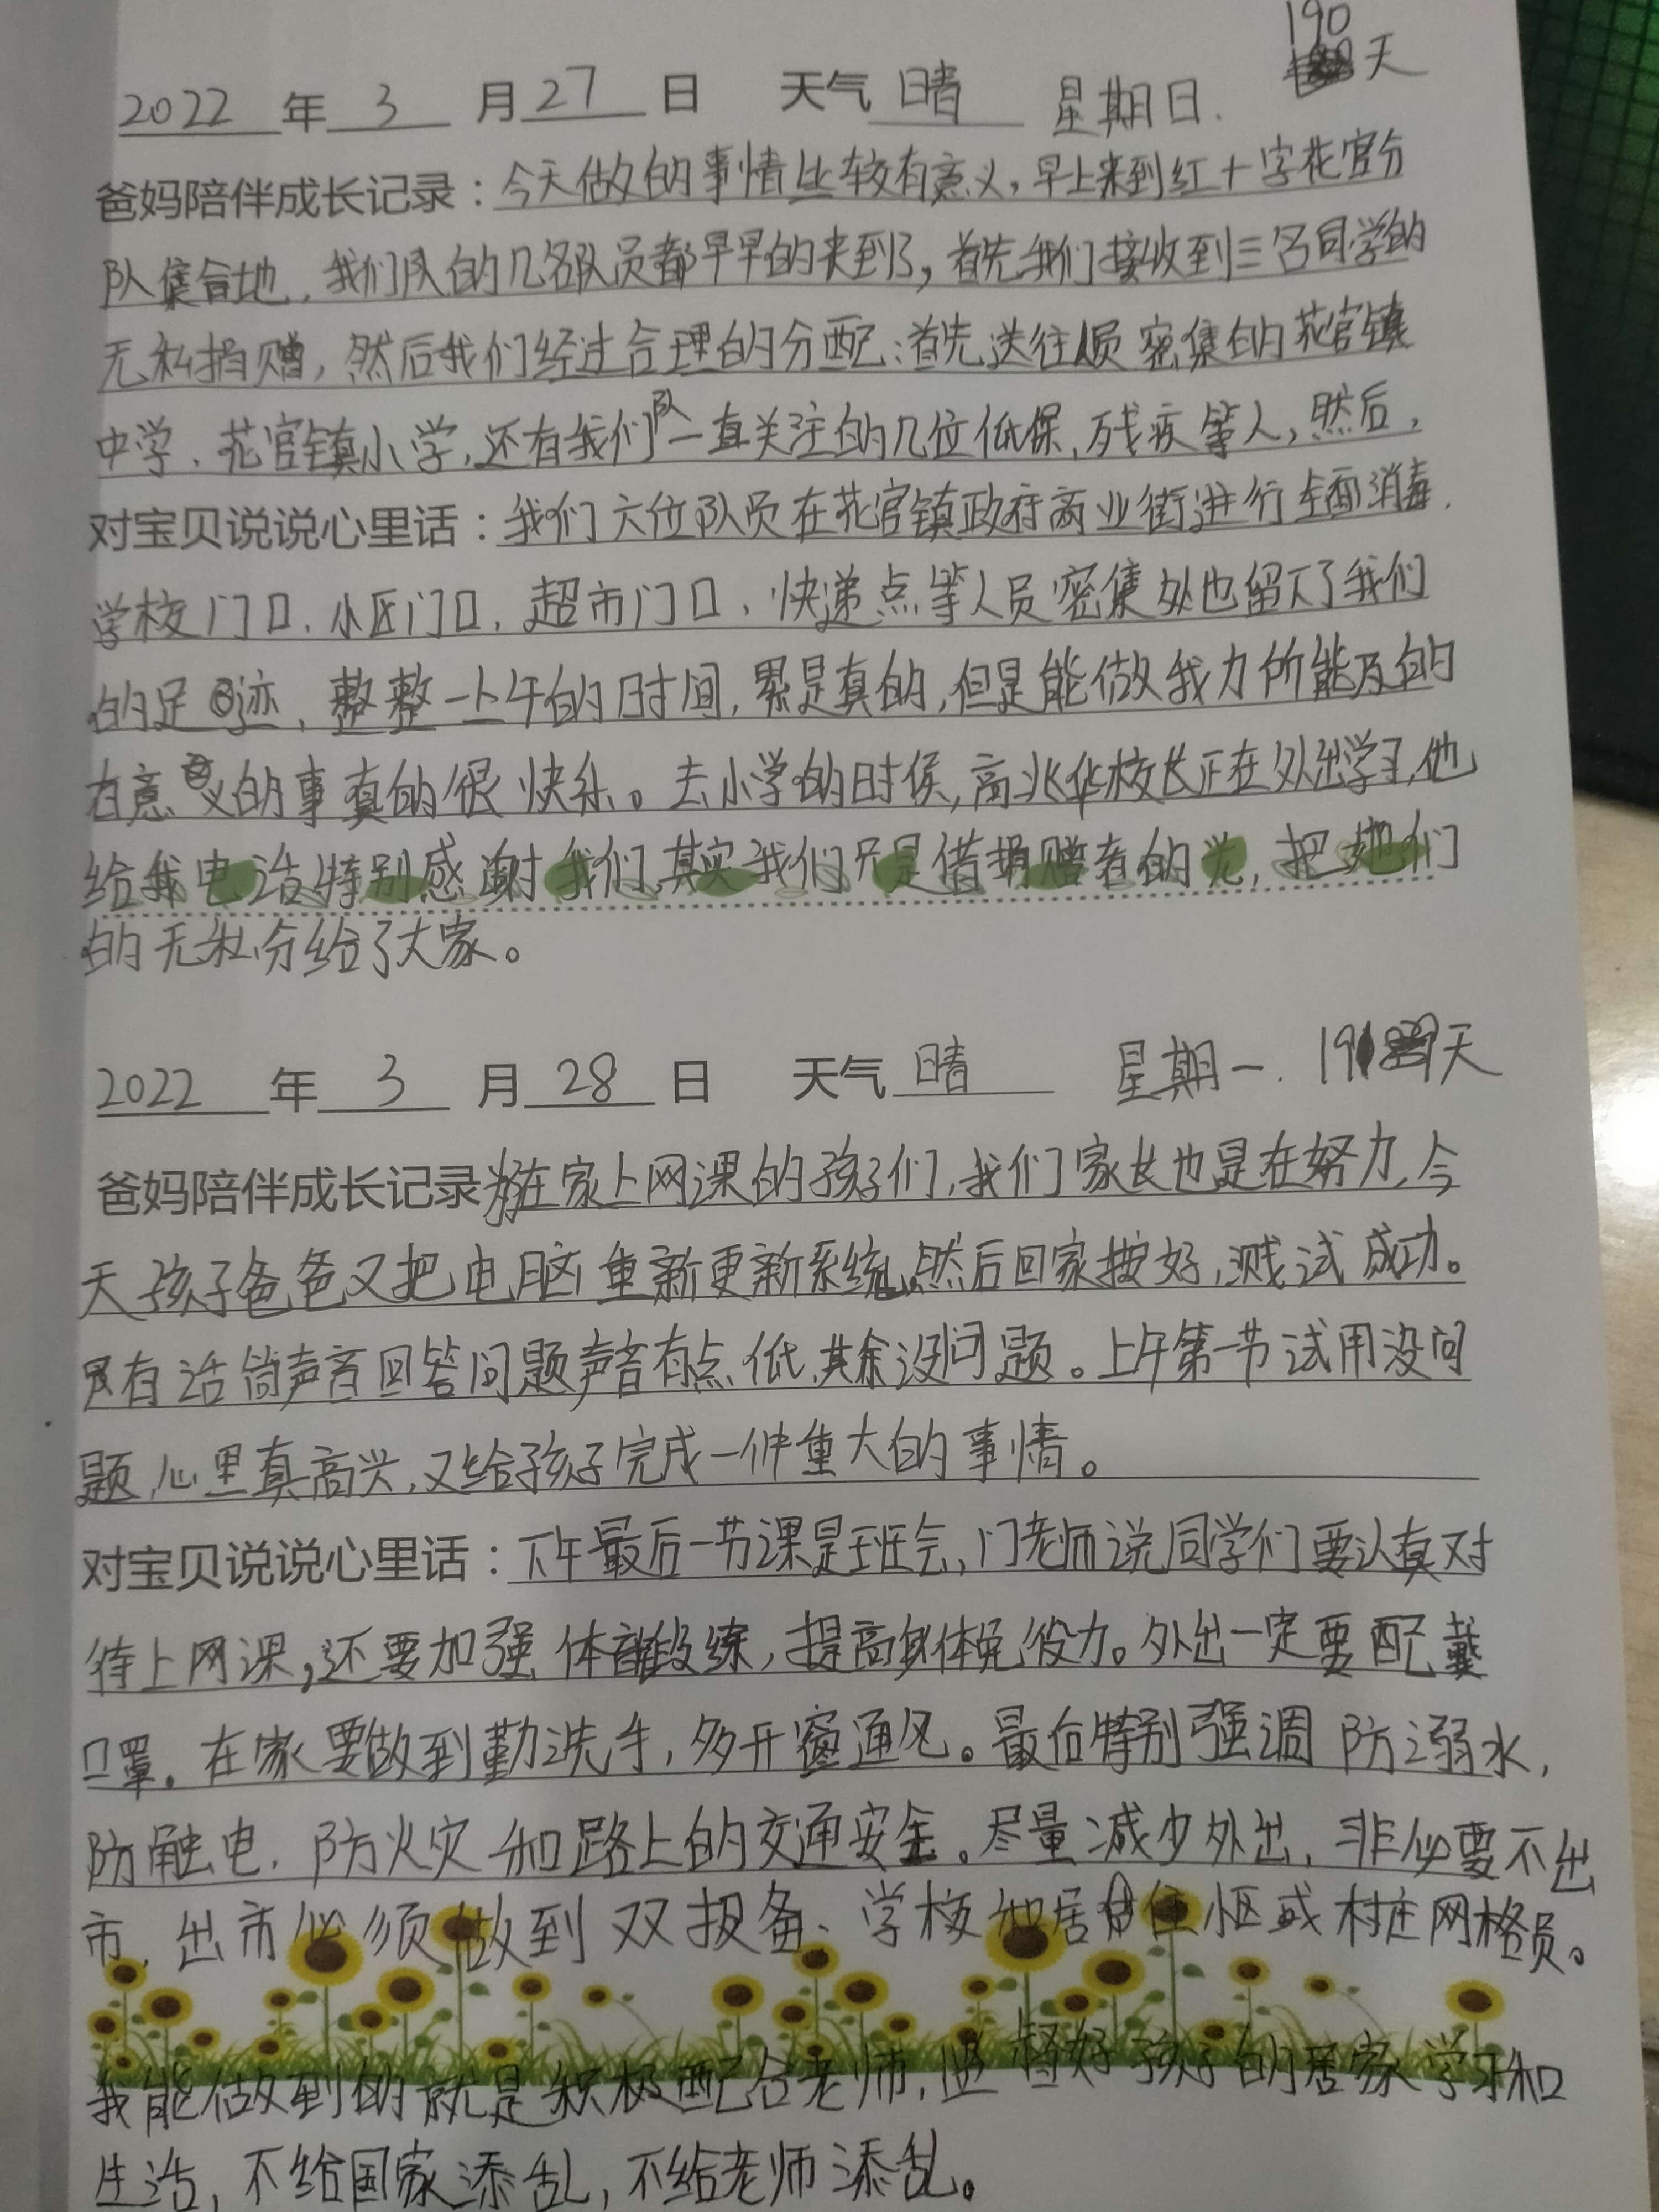 190
2022 年 3 月 27 日 天气 晴 星期日. 天
爸妈陪伴成长记录：今天做的事情比较有意义，早上来到红十字花官分
队集合地，我们队的几名队员都早早的来到了，首先我们接收到三名同学的
无私捐赠，然后我们经过合理的分配：首先送往人员密集的花官镇
中学、花官镇小学，还有我们队一直关注的几位低保、残疾等人，然后，
对宝贝说说心里话：我们六位队员在花官镇政府商业街进行全面消毒.
学校门口、小区门口、超市门口、快递点等人员密集处也留下了我们
的足迹，整整一上午的时间，累是真的，但是能做我力所能及的
有意义的事真的很快乐。去小学的时候，高兆华校长正在外出学习，他
给我电话特别感谢我们，其实我们只是借捐赠者的光，把她们
的无私分给了大家。
2022 年 3 月 28 日 天气 晴 星期一. 191天
爸妈陪伴成长记录为在家上网课的孩子们，我们家长也是在努力，今
天孩子爸爸又把电脑重新更新系统，然后回家按好，测试成功。
只有话筒声音回答问题声音有点低，其余没问题。上午第一节试用没问
题，心里真高兴，又给孩子完成一件重大的事情。
对宝贝说说心里话：下午最后一节课是班会，门老师说同学们要认真对
待上网课，还要加强体育锻练，提高身体免役力。外出一定要配戴
口罩。在家要做到勤洗手，多开窗通风。最后特别强调防溺水，
防触电，防火灾和路上的交通安全。尽量减少外出，非必要不出
市，出市必须做到双报备、学校和居住小区或村庄网格员。
我能做到的就是积极配合老师，监督好孩子的居家学习和
生活，不给国家添乱，不给老师添乱。